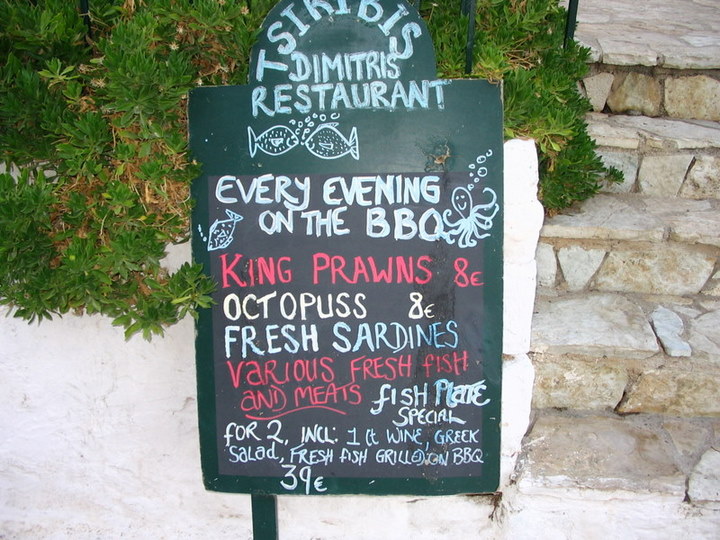 TSIRIBIS
DIMITRIS
RESTAURANT
EVERY EVENING
ON THE BBQ
KING PRAWNS 8€
OCTOPUSS 8€
FRESH SARDINES
VARIOUS FRESH FISH
AND MEATS
FISH PLATE
SPECIAL
FOR 2, INCL: 1 lt WINE, GREEK
Salad, FRESH FISH GRILLED ON BBQ
39€